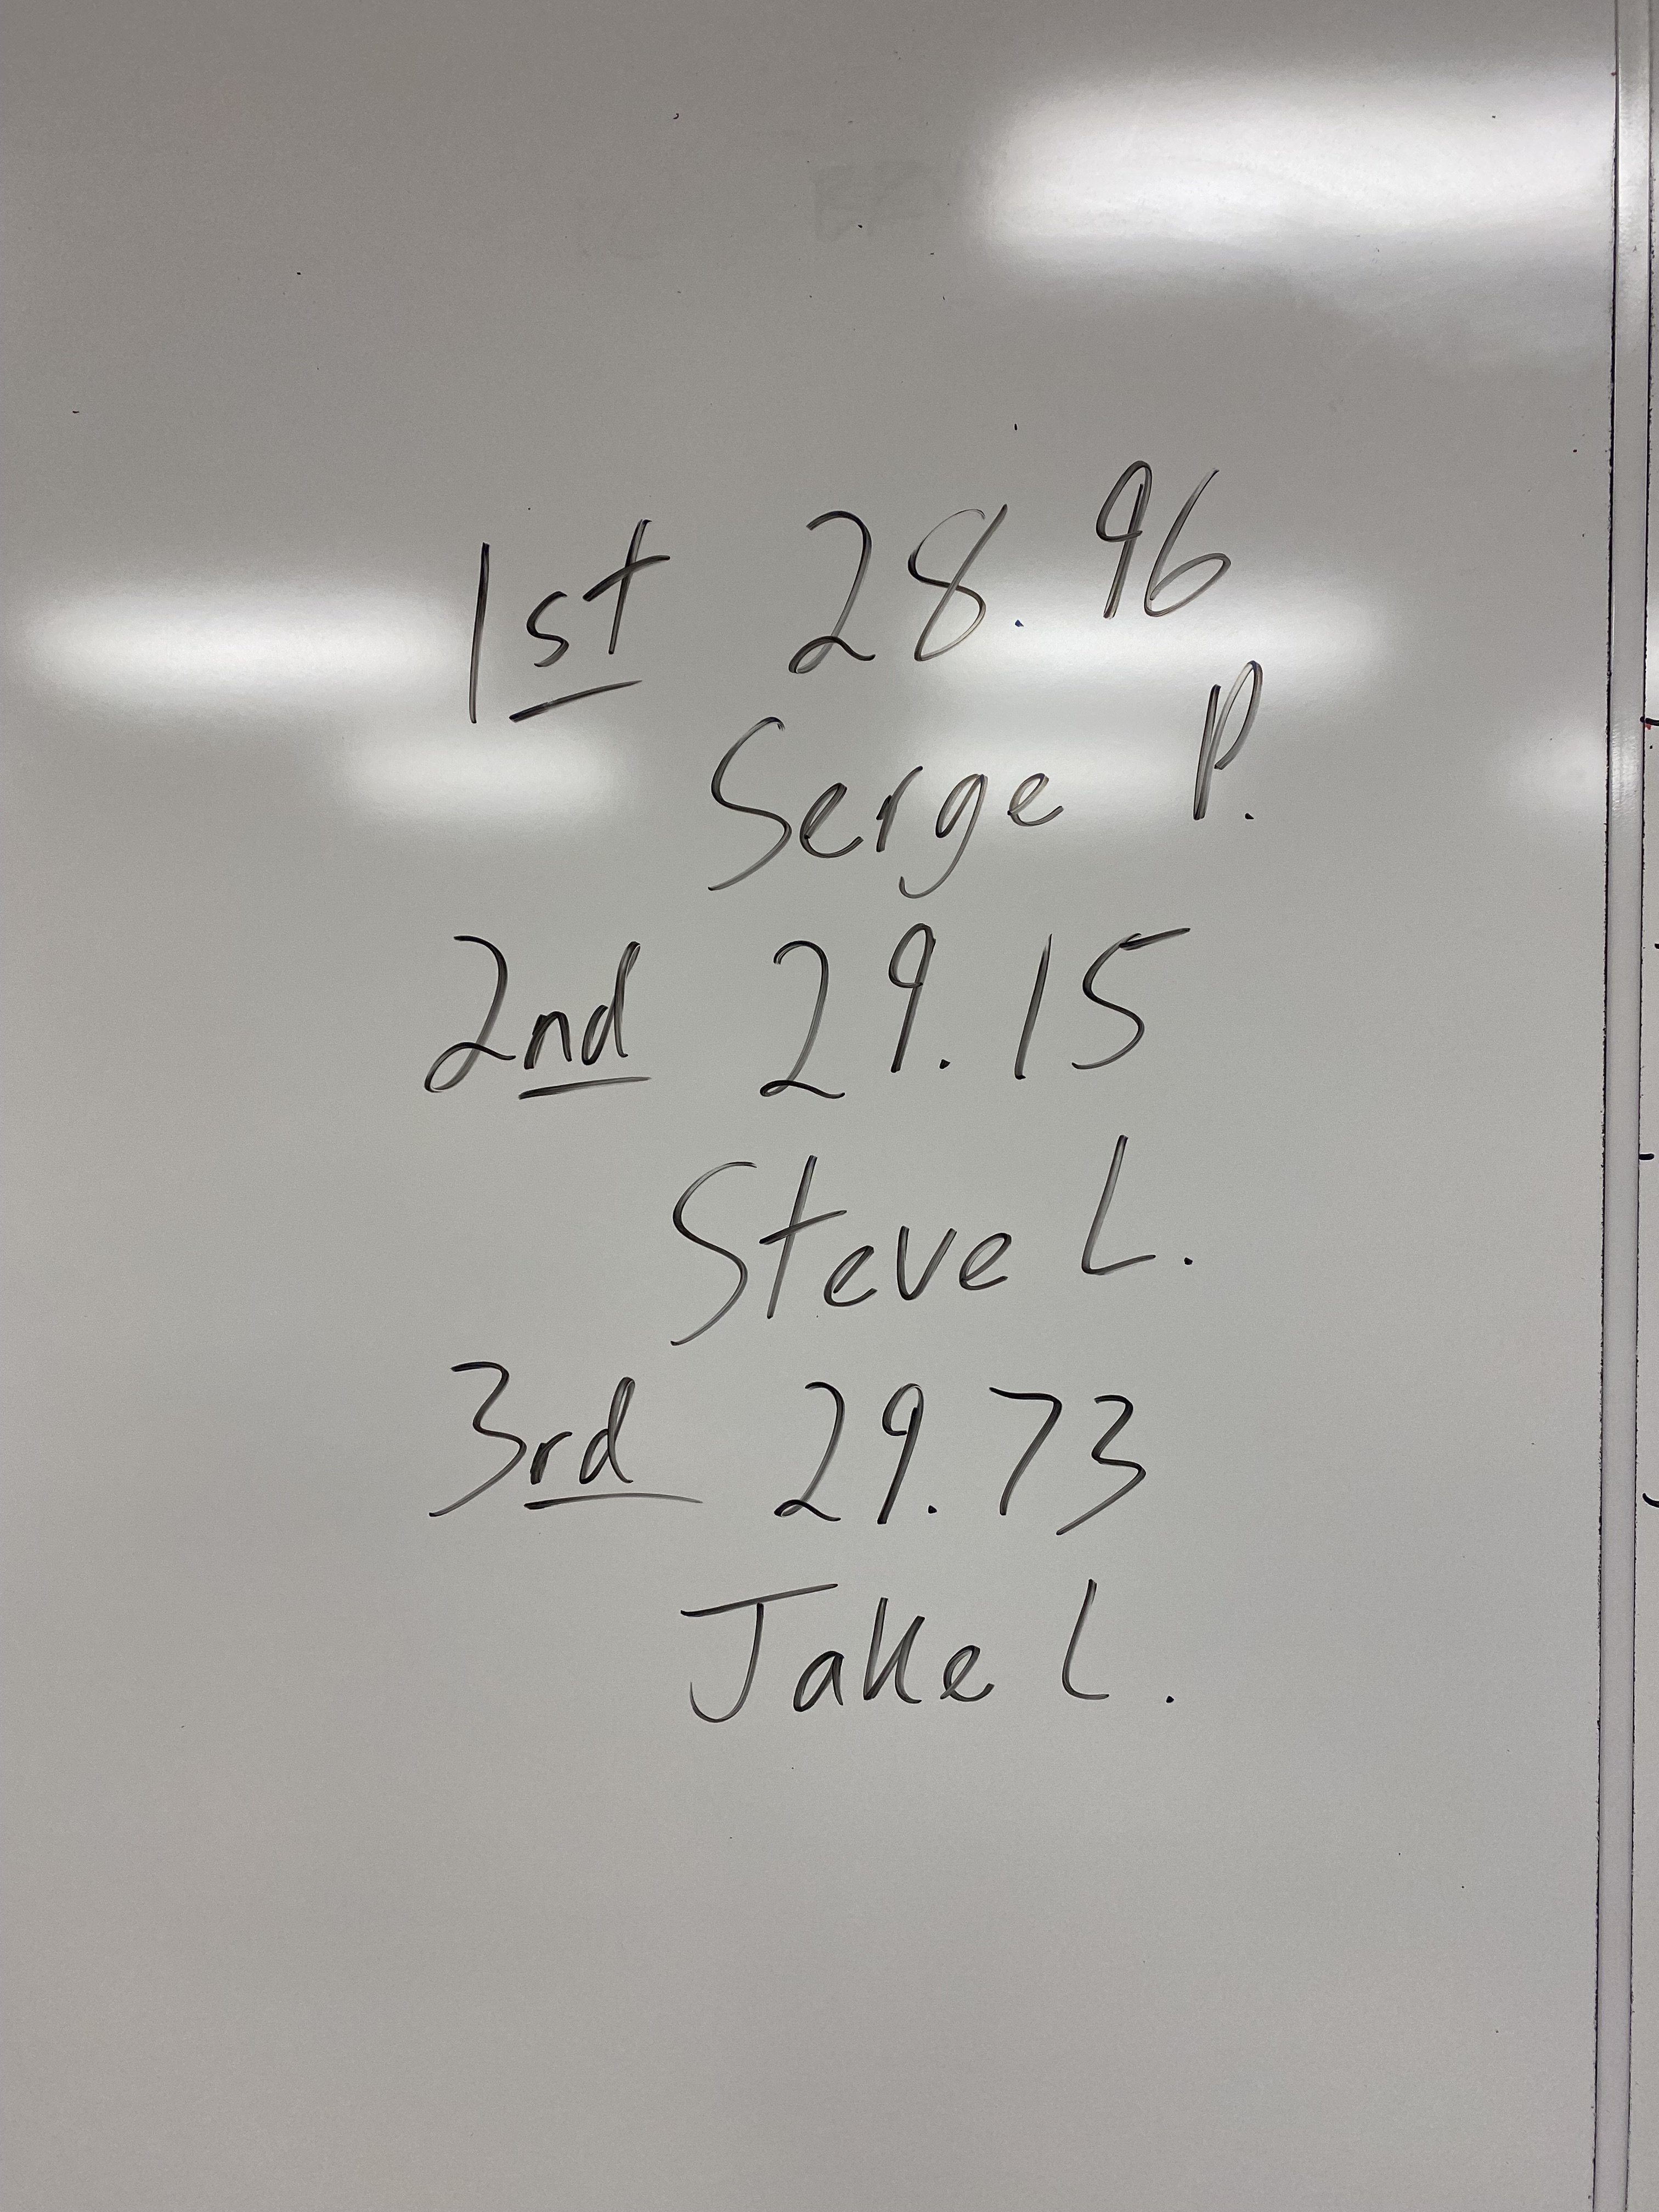 1st 28.96
Serge P.
2nd 29.15
Steve L.
3rd 29.73
Jake L.